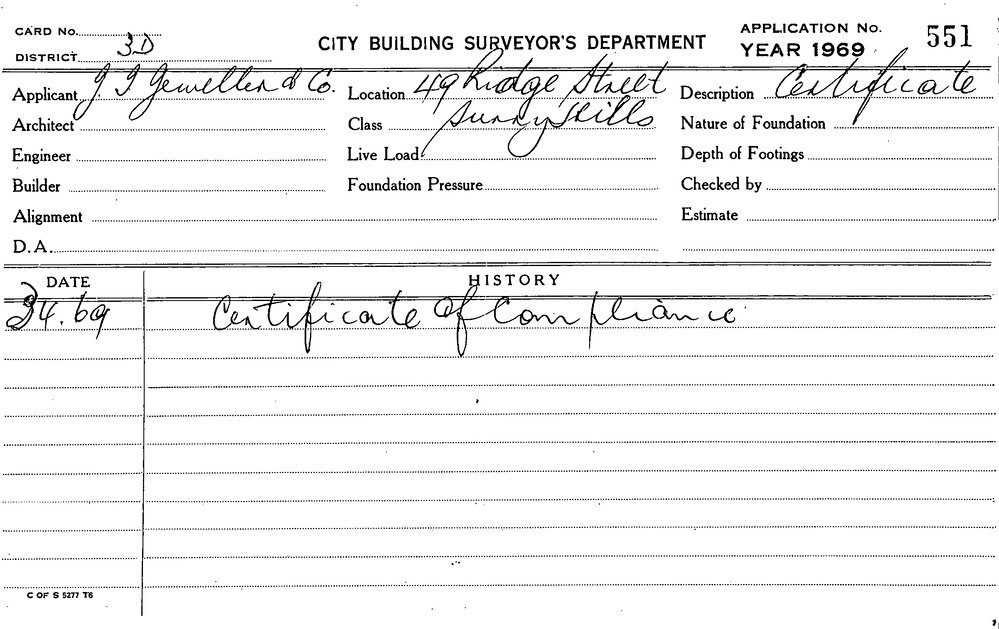 CARD No.
DISTRICT 3D
CITY BUILDING SURVEYOR'S DEPARTMENT
APPLICATION No. 551
YEAR 1969
Applicant J J & Co. Location 49 Ridge Street Description Certificate
Architect Class Surry Hills Nature of Foundation
Engineer Live Load Depth of Footings
Builder Foundation Pressure Checked by
Alignment Estimate
D.A.
DATE HISTORY
4.69 Certificate of Compliance
C OF S 5277 T6